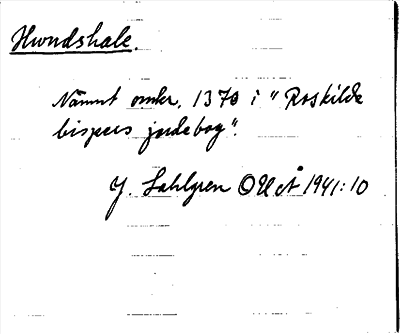 Hwndshale.
Nämnt omkr. 1370 i "Roskilde
bispens jordebog".
J. Sahlgren OUÅ 1941:10